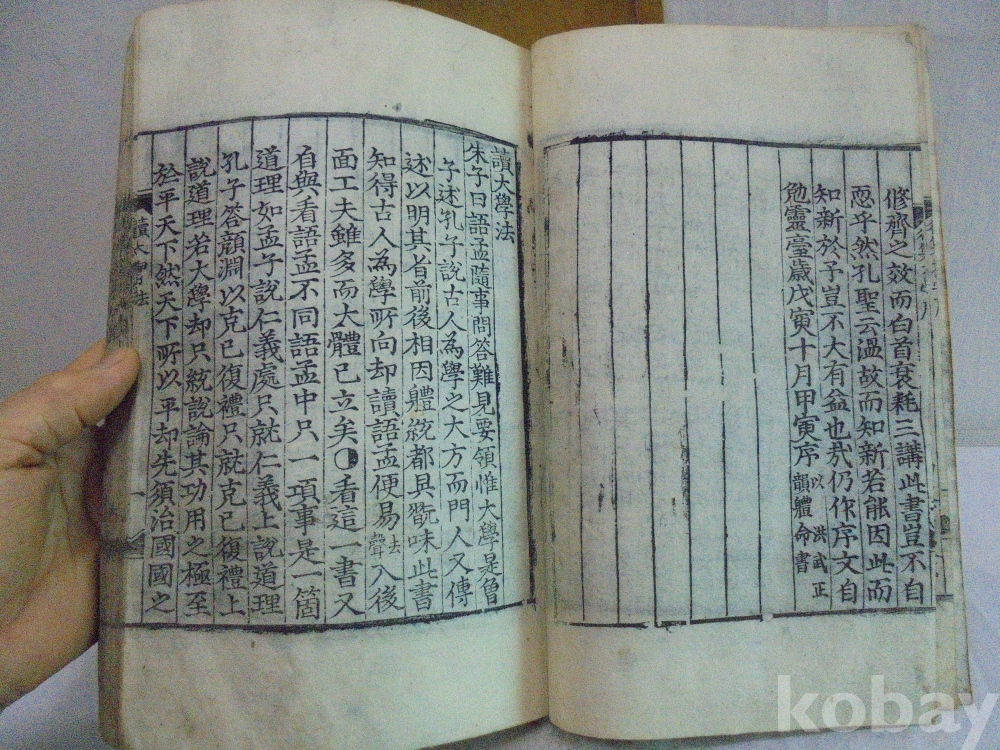 修齊之效而白首衰耗三講此書豈不自
恧乎然孔聖云溫故而知新若能因此而
知新於予豈不大有益也哉仍作序文自
勉靈臺歲戊寅十月甲寅序 以洪武正韻體命書
讀大學法
朱子曰語孟隨事問答難見要領惟大學是曾
子述孔子說古人為學之大方而門人又傳
述以明其旨前後相因體統都具翫味此書
知得古人為學所向却讀語孟便易去聲入後
面工夫雖多而大體已立矣◑看這一書又
自與看語孟不同語孟中只一項事是一箇
道理如孟子說仁義處只就仁義上說道理
孔子答顏淵以克己復禮只就克己復禮上
說道理若大學却只統說論其功用之極至
於平天下然天下所以平却先須治國國之
讀大學法
一
kobay